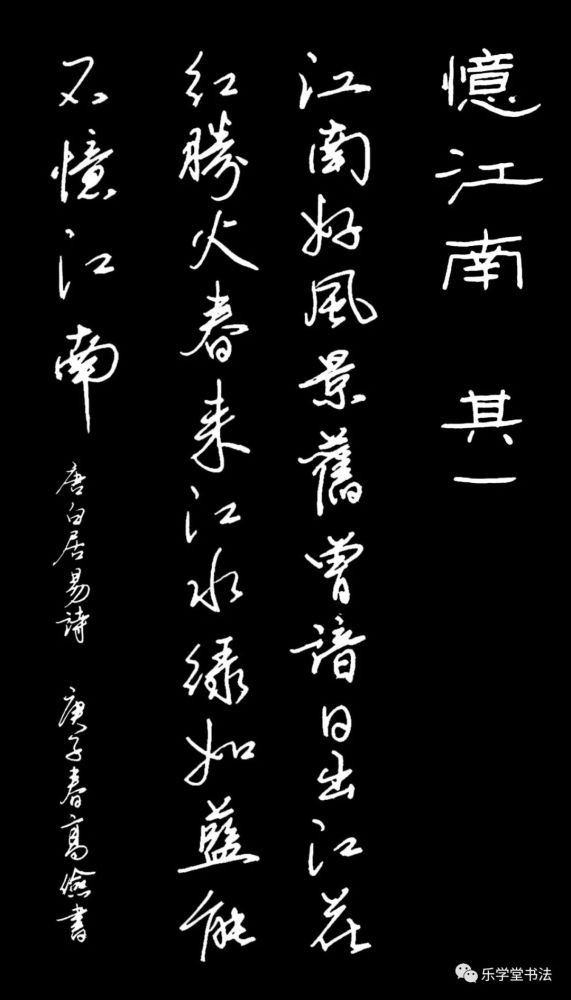 憶江南 其一
江南好風景舊曾諳日出江花
紅勝火春来江水緑如藍能
不憶江南
唐白居易詩 庚子春高儉書
乐学堂书法